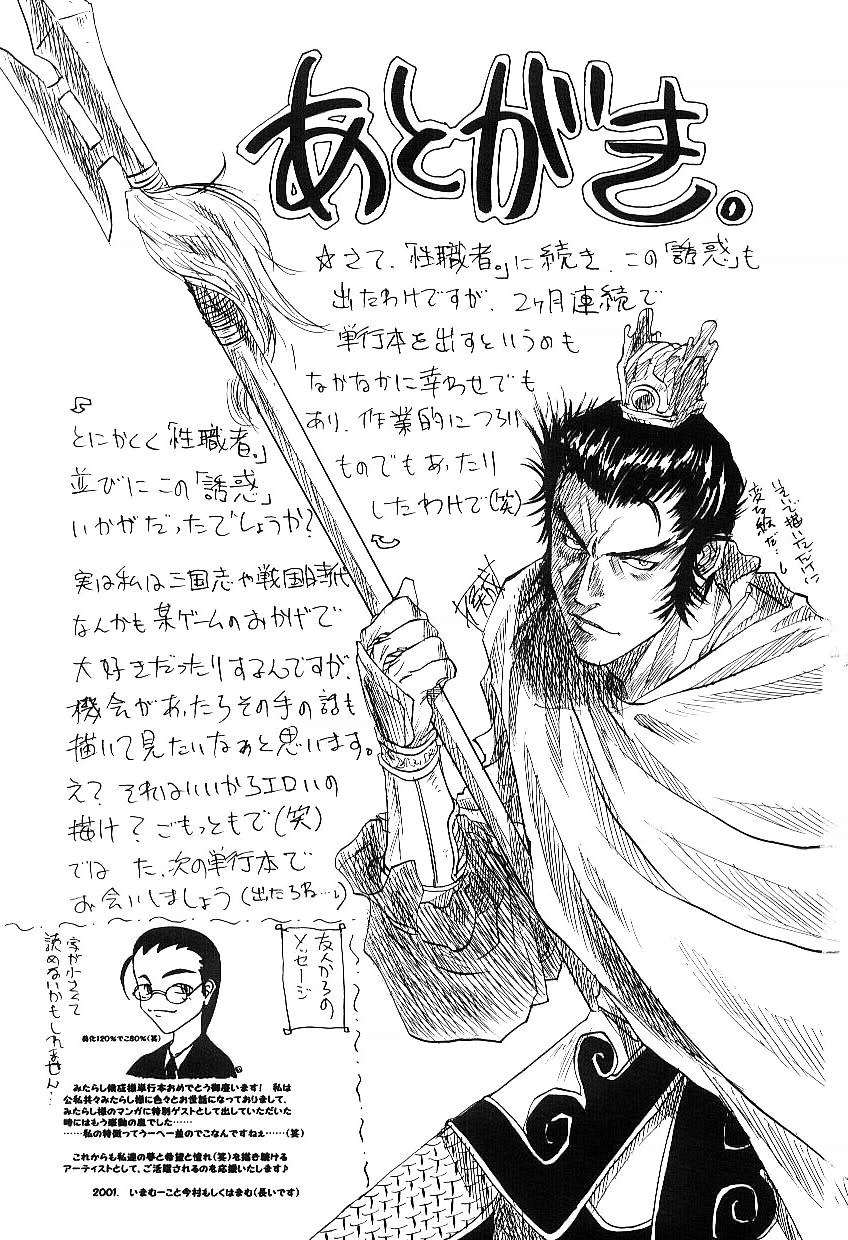 あとがき。
☆さて、「性職者。」に続き、この「誘惑」も
出たわけですが、2ヶ月連続で
単行本を出すというのも
なかなかに幸わせでも
あり、作業的につらい
ものでもあったり
したわけで(笑)
とにかく「性職者。」
並びにこの「誘惑」
いかがだったでしょうか?
実は私は三国志や戦国時代
なんかも某ゲームのおかげで
大好きだったりするんですが、
機会があったらその手の話も
描いて見たいなぁと思います。
え? それはいいからエロいの
描け? ごもっともで(笑)
では また、次の単行本で
お会いしましょう(出たらね…)
いそいで描いただけに
変な絵だ…
友人からの
メッセージ
字が小さくて
読めないかもしれません…
美化120%でこ80%(笑)
みたらし侯成様単行本おめでとう御座います! 私は
公私共々みたらし様に色々とお世話になっておりまして、
みたらし様のマンガに特別ゲストとして出していただいた
時にはもう感動の嵐でした……
……私の特徴ってうーへー差のでこなんですねぇ……(笑)
これからも私達の夢と希望と憧れ(笑)を描き続ける
アーティストとして、ご活躍されるのを応援いたします♪
2001. いまむーこと今村もしくはまむ(長いです)